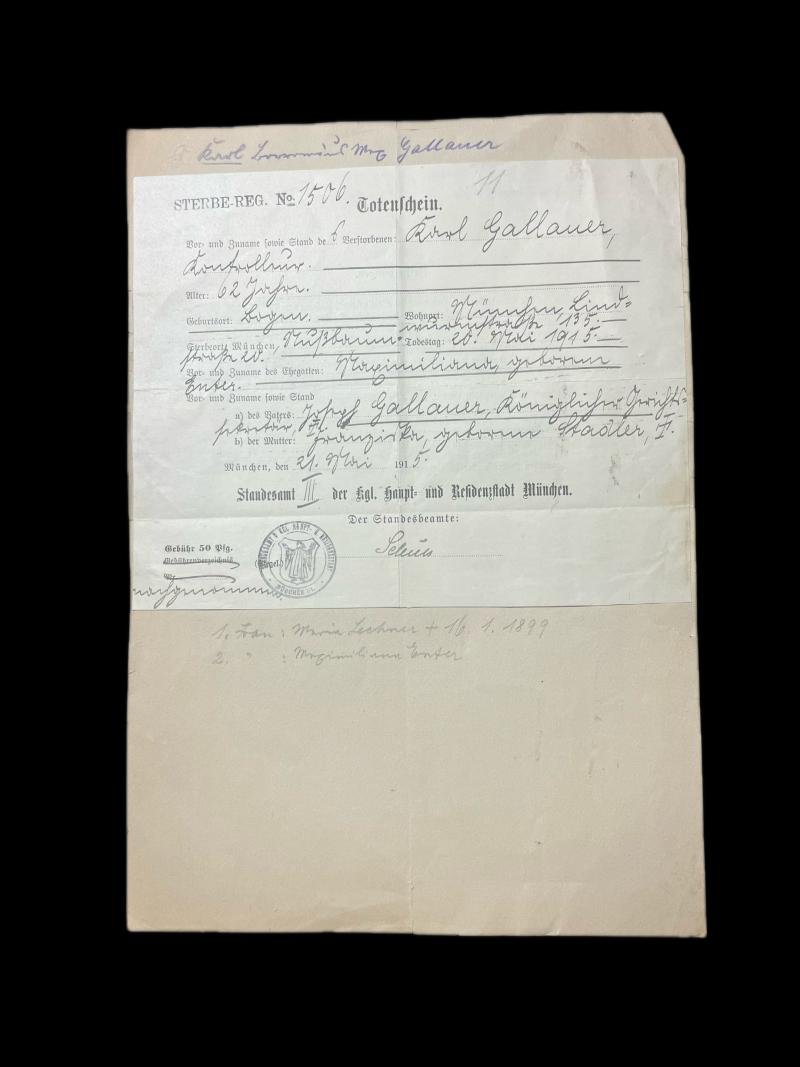 Karl Borromäus Max Gallauer
11
STERBE-REG. No. 1506. Totenschein.
Vor- und Zuname sowie Stand des Verstorbenen: Karl Gallauer,
Kontrolleur.
Alter: 62 Jahre.
Geburtsort: Bogen. Wohnort: München, Lind-
wurmstraße 135.
Sterbeort München, Nußbaum- Todestag: 20. Mai 1915.
straße 20.
Vor- und Zuname des Ehegatten: Maximiliana, geborene
Enter.
Vor- und Zuname sowie Stand
a) des Vaters: Joseph Gallauer, Königlicher Gerichts-
sekretär, †.
b) der Mutter: Franziska, geborene Stadler, †.
München, den 21. Mai 1915.
Standesamt III der Kgl. Haupt- und Residenzstadt München.
Der Standesbeamte:
Gebühr 50 Pfg.
Gebührenverzeichnis
(Siegel)
Nr.
nachgenommen.
1. Frau : Maria Lechner + 16. 1. 1899
2. " : Maximiliana Enter